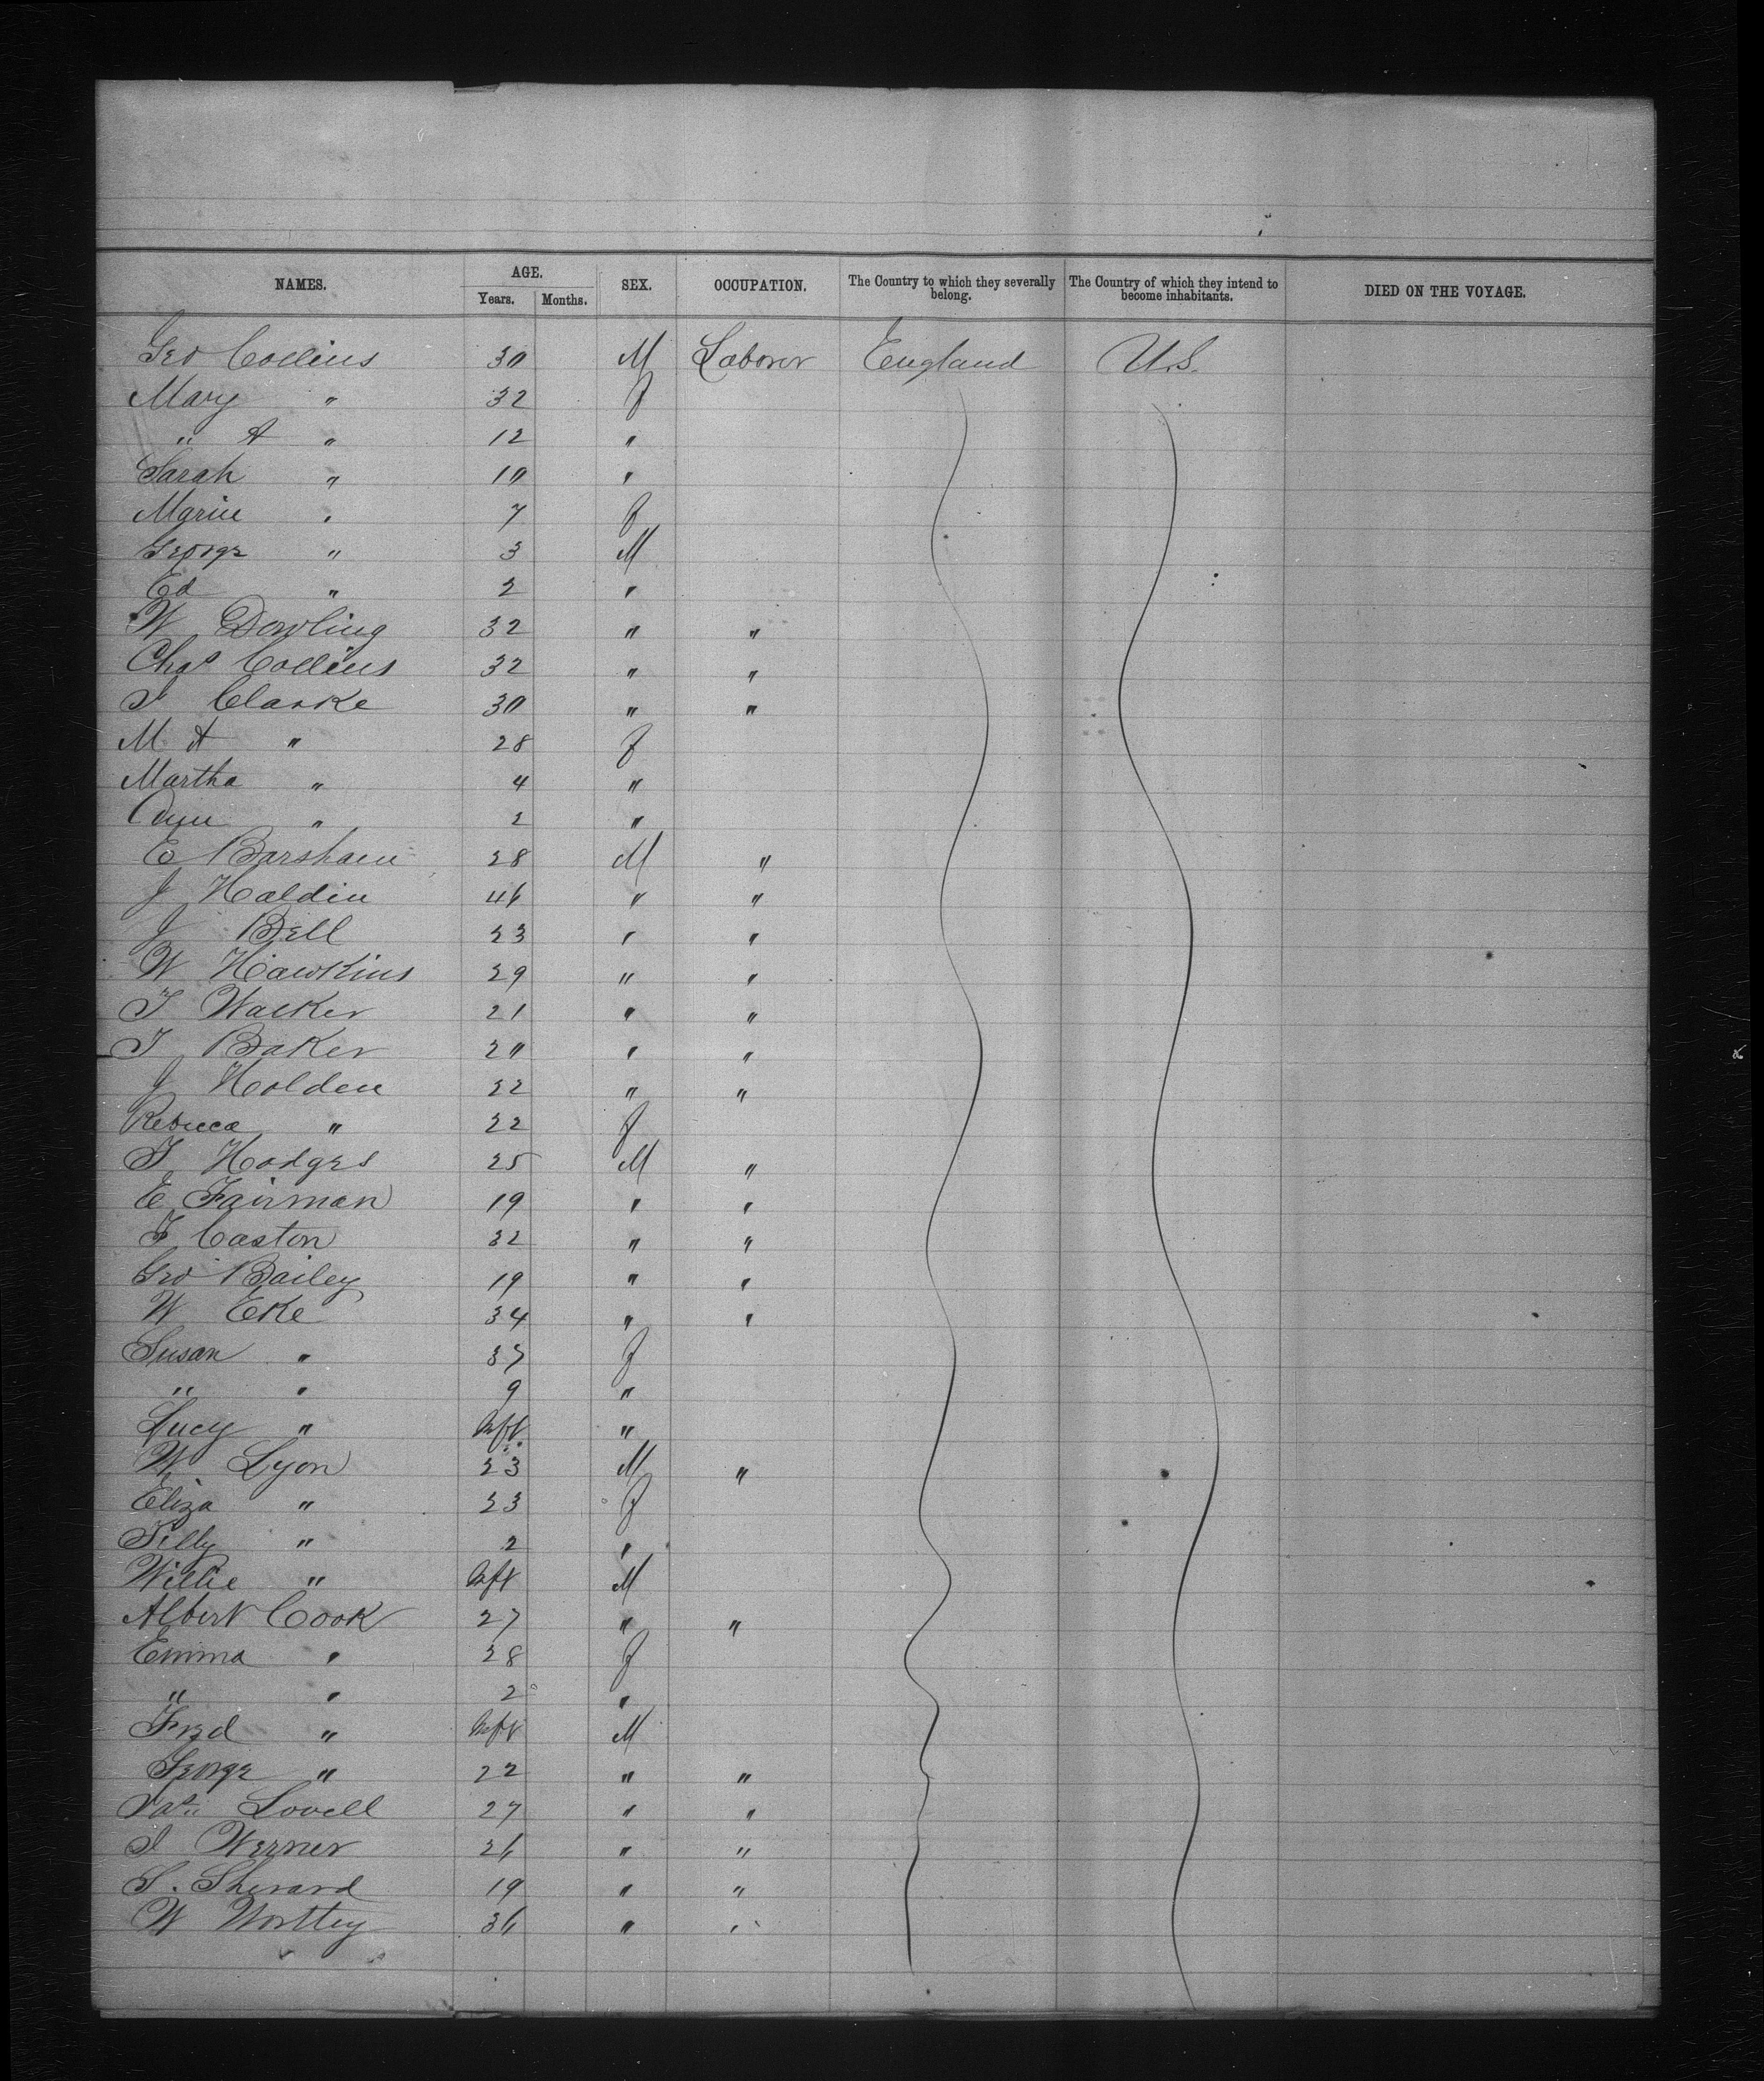 NAMES. AGE. SEX. OCCUPATION. The Country to which they severally belong. The Country of which they intend to become inhabitants. DIED ON THE VOYAGE.
Years. Months.
Geo Collins 30 M Laborer England U.S.
Mary " 32 f
" A " 12 "
Sarah " 10 "
Marie " 7 f
George " 3 M
Ed " 2 "
W Dowling 32 " "
Chas Collins 32 " "
J Clarke 30 " "
M A " 28 f
Martha " 4 "
Ann " 2 "
E Barsham 28 M "
J Haldin 46 " "
J Bell 23 " "
W Hawkins 29 " "
T Walker 21 " "
T Baker 20 " "
J Holden 22 " "
Rebecca " 22 f
T Hodges 25 M "
E Fairman 19 " "
F Caston 32 " "
Geo Bailey 19 " "
W Eke 34 " "
Susan " 37 f
" " 9 "
Lucy " Inft "
W Lyon 23 M "
Eliza " 23 f
Tilly " 2 "
Willie " Inft M
Albert Cook 27 " "
Emma " 28 f
" " 2 "
Fred " Inft M
George " 22 " "
Lovell 27 " "
J Werner 26 " "
S. Sherard 19 " "
W Wortley 36 " "